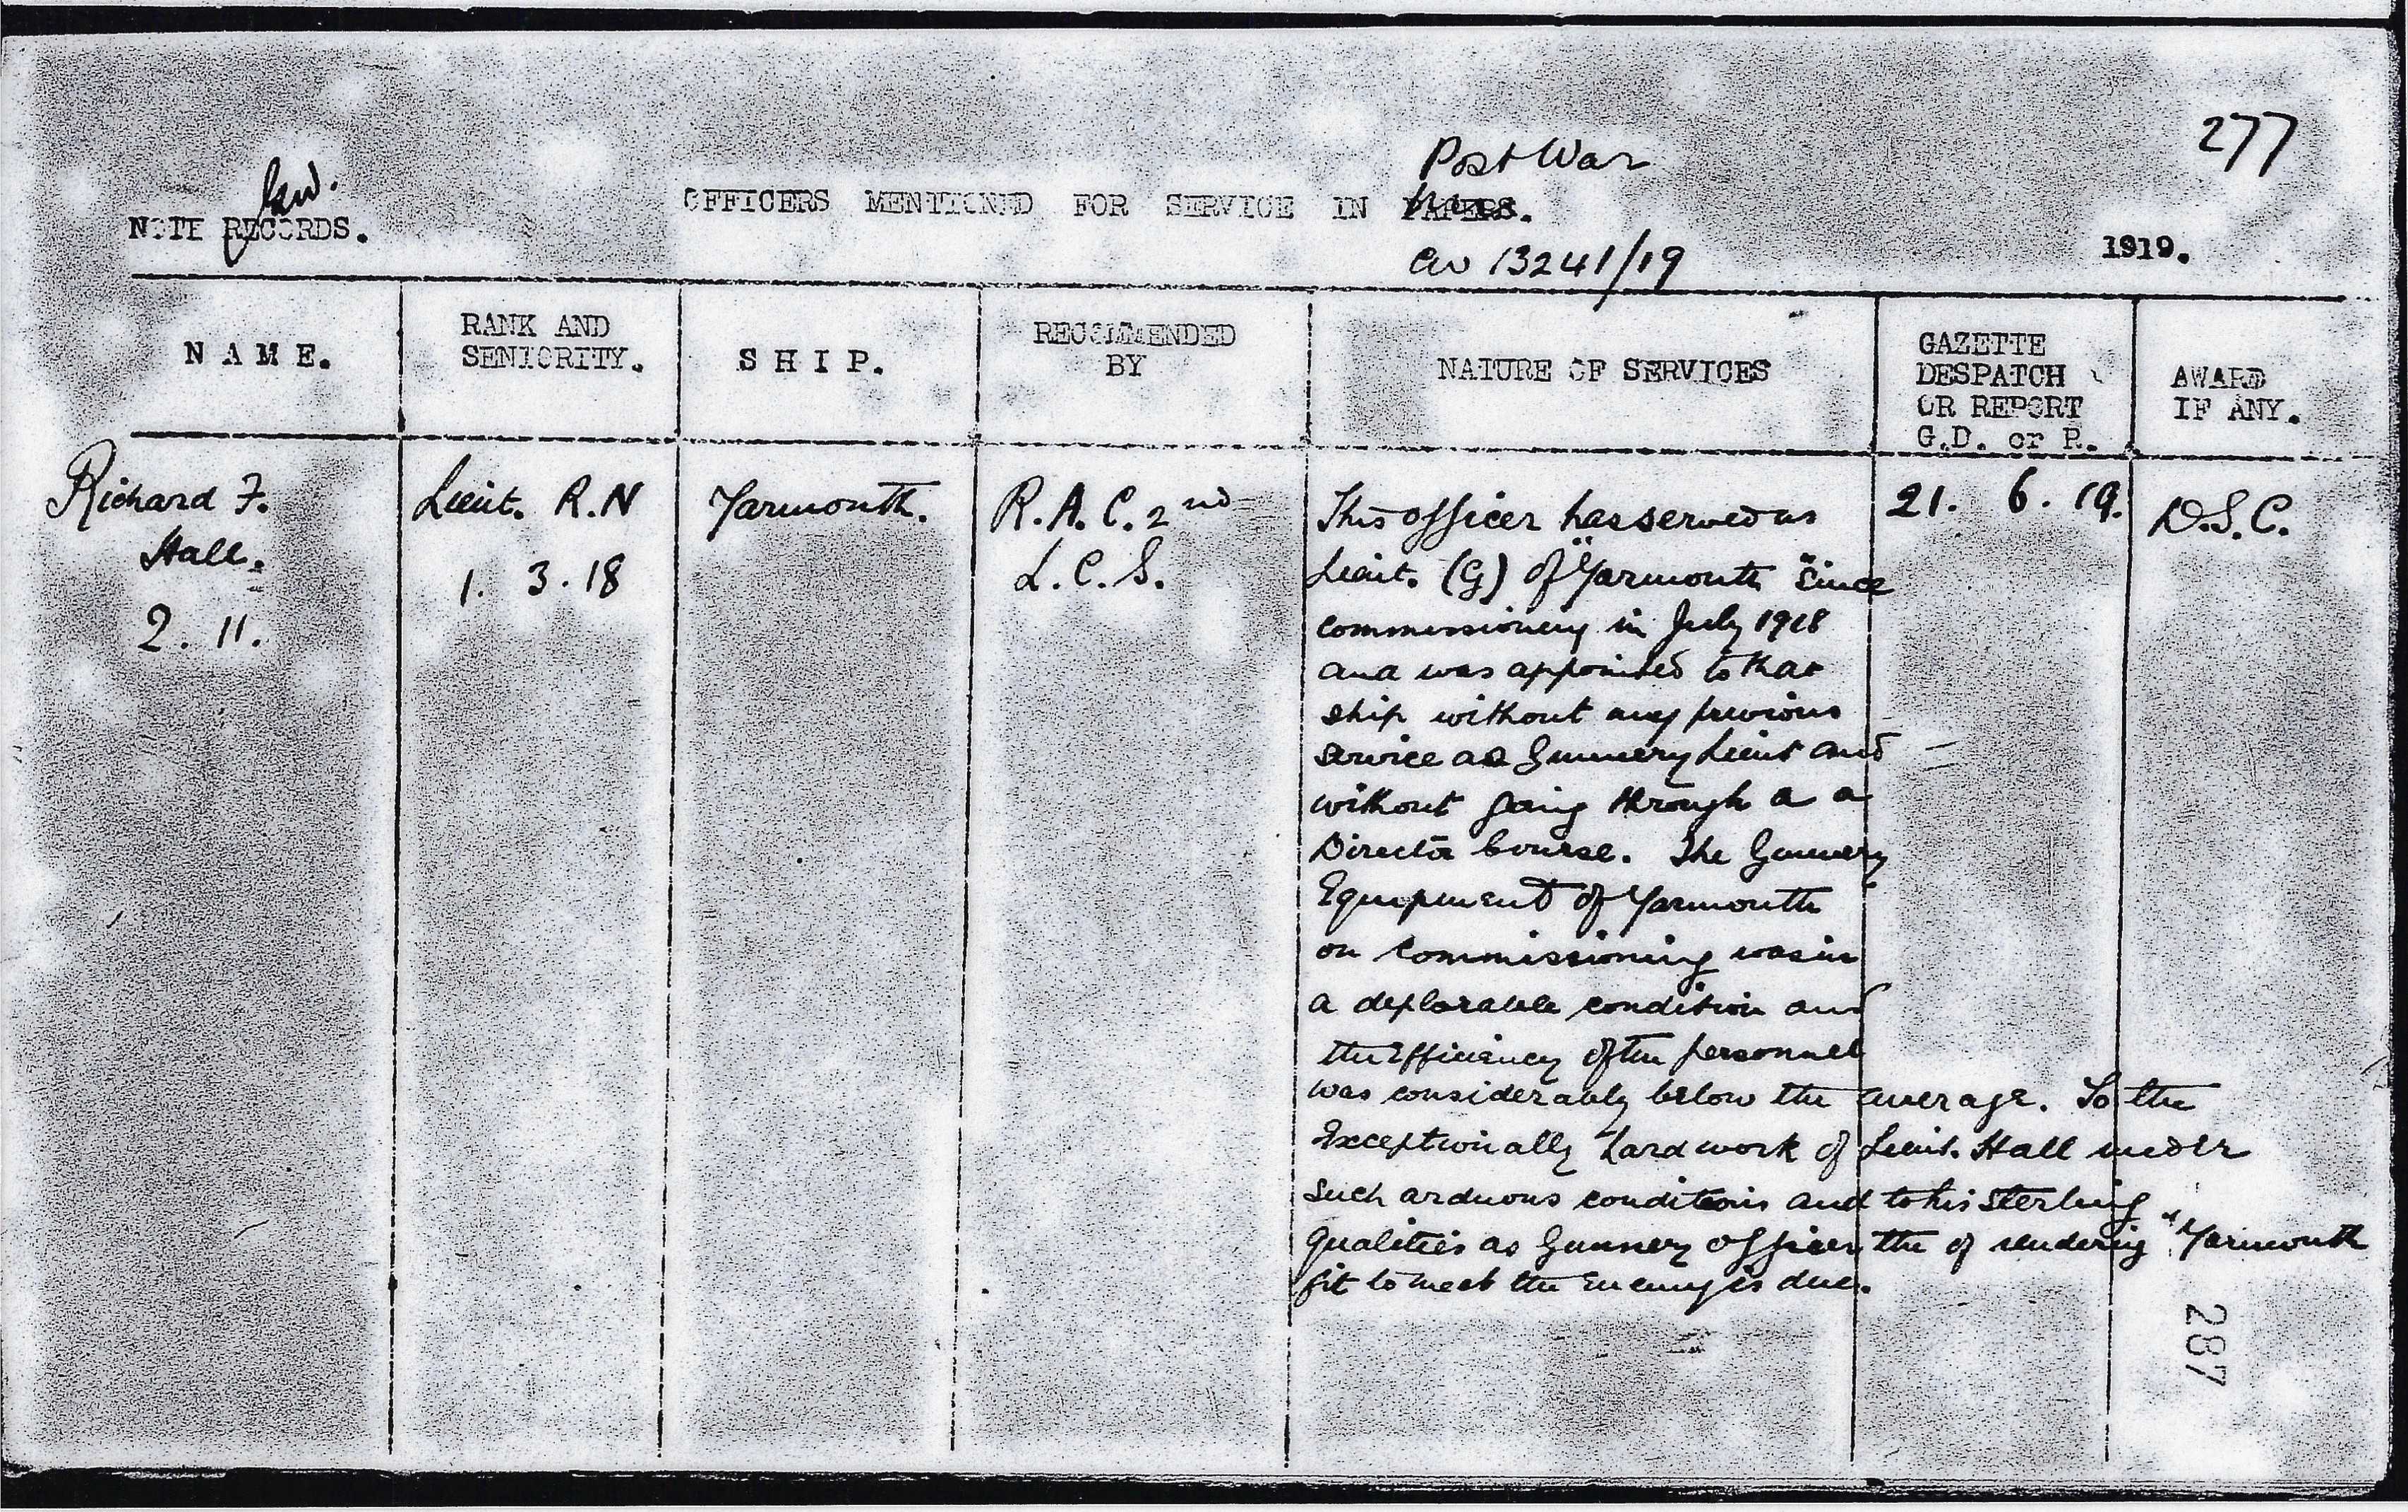 277
Post War
NOTE RECORDS.
OFFICERS MENTIONED FOR SERVICE IN PAPERS.
CW 13241/19
1919.
NAME.
RANK AND
SENIORITY.
SHIP.
RECOMMENDED
BY
NATURE OF SERVICES
GAZETTE
DESPATCH
OR REPORT
G.D. or R.
AWARD
IF ANY.
Richard F.
Hall.
2. 11.
Lieut. R.N
1. 3. 18
Yarmouth.
R.A.C. 2nd
L.C.S.
This officer has served as
Lieut. (G) of "Yarmouth" since
commissioning in July 1918
and was appointed to that
ship without any previous
service as Gunnery Lieut and
without going through a a
Director Course. The Gunnery
Equipment of Yarmouth
on commissioning was in
a deplorable condition and
the Efficiency of the personnel
was considerably below the average. To the
Exceptionally hard work of Lieut. Hall under
such arduous conditions and to his sterling
qualities as Gunnery officer the of rendering "Yarmouth
fit to meet the Enemy is due.
21. 6. 19.
D.S.C.
287